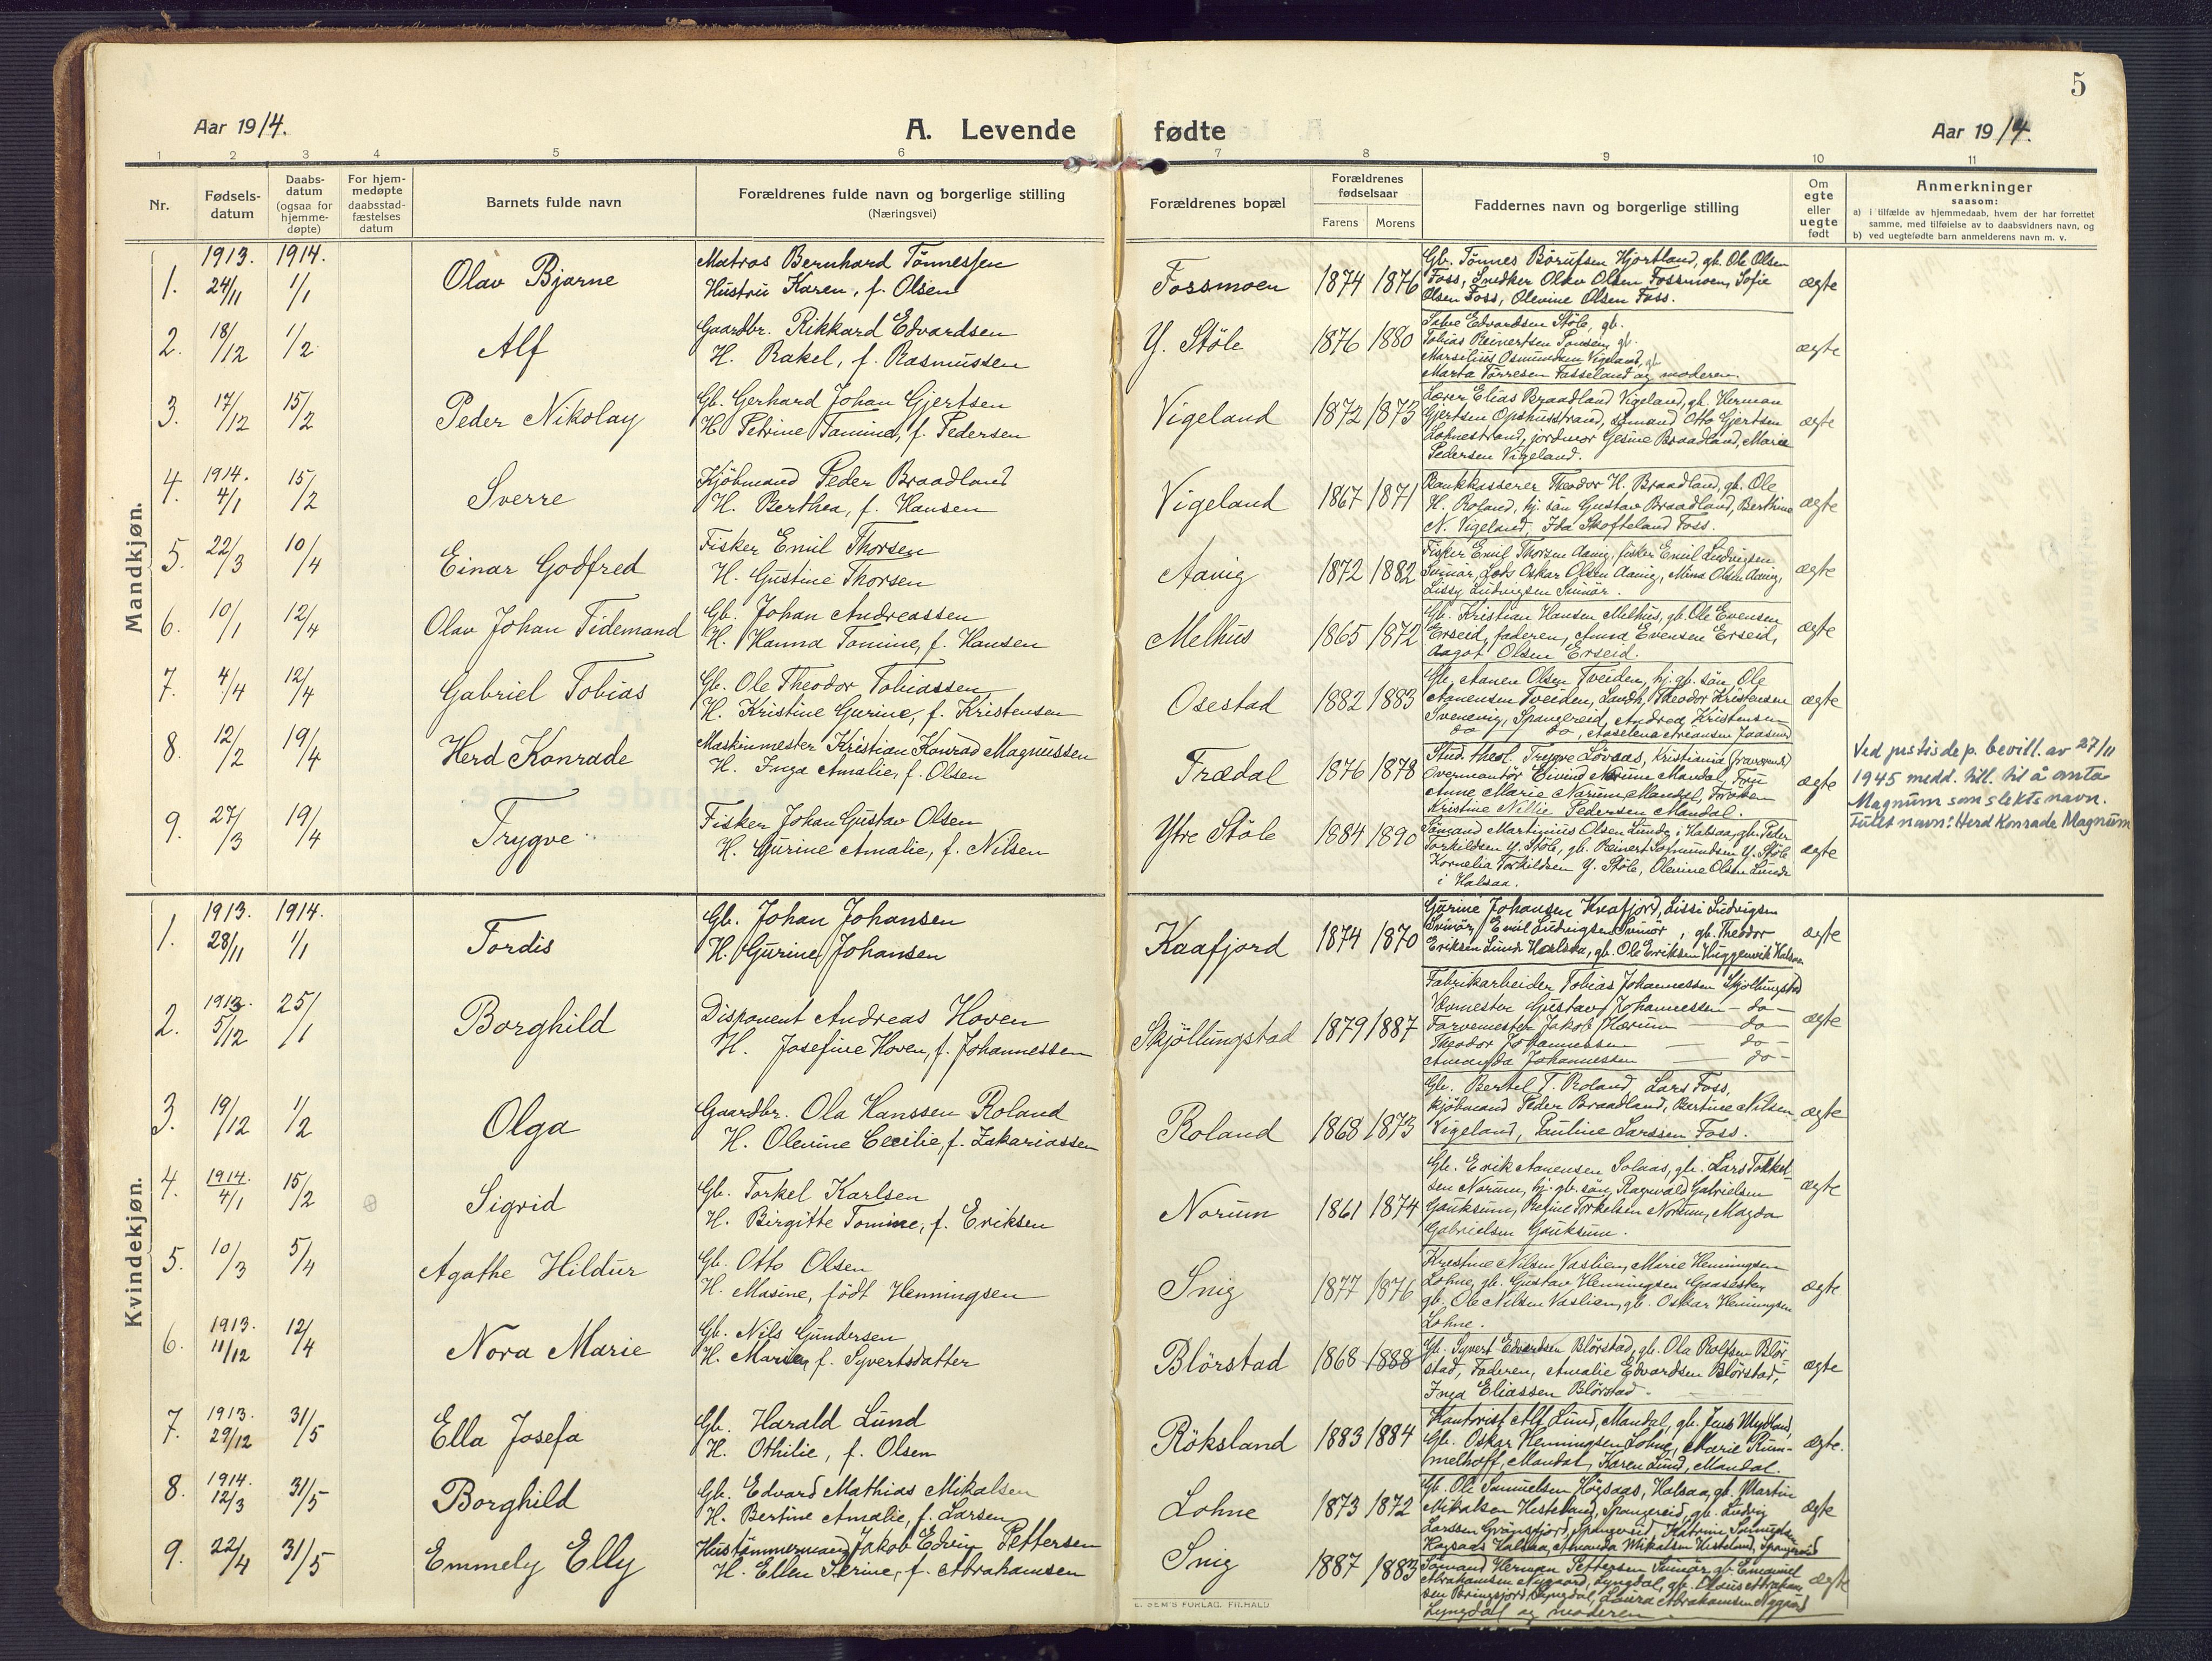 5
Aar 1914.
A. Levende fødte
Aar 1914.
1 2 3 4 5 6 7 8 9 10 11
Nr.
Fødsels-
datum
Daabs-
datum
(ogsaa for
hjemme-
døpte)
For hjem-
medøpte
daabsstad-
fæstelses
datum
Barnets fulde navn
Forældrenes fulde navn og borgerlige stilling
(Næringsvei)
Forældrenes bopæl
Forældrenes
fødselsaar
Farens Morens
Faddernes navn og borgerlige stilling
Om
egte
eller
uegte
født
Anmerkninger
saasom:
a) i tilfælde av hjemmedaab, hvem der har forrettet
samme, med tilføielse av to daabsvidners navn, og
b) ved uegtefødte barn anmelderens navn m. v.
Mandkjøn.
1. 1913. 24/11 1914. 1/1 Olav Bjarne
Matros Bernhard Tönnessen
Hustru Karen, f. Olsen
Fossmoen 1874 1876
Gb. Tönnes Börufsen Hjortland, gb. Ole Olsen
Foss, Snedker Olav Olsen Fossmoen, Sofie
Olsen Foss, Olevine Olsen Foss.
ægte
2. 18/12 1/2 Alf
Gaardbr. Rikkard Edvardsen
H. Rakel, f. Rasmussen
Y. Støle 1876 1880
Salve Edvardsen Støle, gb.
Tobias Reinertsen gb.
Marselius Osmundsen Vigeland, gb.
Marta Tørresen Fasseland og moderen
ægte
3. 17/12 15/2 Peder Nikolay
Gb. Gerhard Johan Gjertsen
H. Petrine Tamine, f. Pedersen
Vigeland 1872 1873
Lærer Elias Braadland Vigeland, gb. Herman
Gjertsen Opshusstrand, sømand Otto Gjertsen
Lohnestrand, jordmor Gesine Braadland, Marie
Pedersen Vigeland.
ægte
4. 1914. 4/1 15/2 Sverre
Kjöbmand Peder Braadland
H. Berthea, f. Hansen
Vigeland 1867 1871
Bankkasserer Theodor H. Braadland, gb. Ole
H. Roland, hj. sön Gustav Braadland, Berthine
N. Vigeland, Ida Skofteland Foss.
ægte
5. 22/3 10/4 Einar Godfred
Fisker Emil Thorsen
H. Gustine Thorsen
Aavig 1872 1882
Fisker Emil Thorsen Aavig, fisker Emil Ludvigsen
Svinør, Lods Oskar Olsen Aavig, Mina Olsen Aavig,
Lissy Ludvigsen Svinør.
ægte
6. 10/1 12/4 Olav Johan Tidemand
Gb. Johan Andreassen
H. Hanna Tomine, f. Hansen
Melhus 1865 1872
Gb. Kristian Hansen Melhus, gb. Ole Evensen
Erseid, faderen, Anna Evensen Erseid,
Aagot Olsen Erseid.
ægte
7. 4/4 12/4 Gabriel Tobias
Gb. Ole Theodor Tobiassen
H. Kristine Gurine, f. Kristensen
Osestad 1882 1883
Gb. Aanen Olsen Tveiden, hj. gb. sön Ole
Aanensen Tveiden, Landh. Theodor Kristensen
Svenevig, Spangereid, Andrea Kristensen
do do
ægte
8. 12/2 19/4 Herd Konrade
Maskinmester Kristian Konrad Magnussen
H. Inga Amalie, f. Olsen
Frædal 1876 1878
Stud. theol. Trygve Lövaas, Kristiania (fraværende)
Overmontör Eivind Narum Mandal, Fru
Anne Marie Narum Mandal, Fröken
Kristine Nillie Pedersen Mandal.
ægte
Ved justisdep. bevill. av 27/11
1945 medd. till. til å anta
Magnum som slektsnavn.
Fullt navn: Herd Konrade Magnum
9. 27/3 19/4 Trygve
Fisker Johan Gustav Olsen
H. Gurine Amalie, f. Nilsen
Ytre Støle 1884 1890
Sömand Martinius Olsen Lunde i Halsaa, gb. Peder
Torkildsen Y. Støle, gb. Reinert Y. Støle
Kornelia Torkildsen Y. Støle, Olevine Olsen Lunde
i Halsaa.
ægte
Kvindekjøn.
1. 1913. 28/11 1914. 1/1 Tordis
Gb. Johan Johansen
H. Gurine Johansen
Kaafjord 1874 1870
Gurine Johansen Kvafjord, Lissi Ludvigsen
Svinør, Emil Ludvigsen Svinør, gb. Theodor
Eriksen Lunde Halsaa, gb. Ole Eriksen Huggenvik Halsaa
ægte
2. 1913. 5/12 25/1 Borghild
Disponent Andreas Hoven
H. Josefine Hoven, f. Johannessen
Skjöllingstad 1879 1887
Fabrikarbeider Tobias Johannessen Skjöllingstad
Vævmester Gustav Johannessen - do -
Farvemester Jakob Hærum - do -
Theodor Johannessen - do -
Amanda Johannessen - do -
ægte
3. 19/12 1/2 Olga
Gaardbr. Ola Hanssen Roland
H. Olevine Cecilie, f. Zakariassen
Roland 1868 1873
Gb. Bertel T. Roland, Lars Foss,
kjöbmand Peder Braadland, Bertine Nilsen
Vigeland, Pauline Larssen Foss.
ægte
4. 1914. 4/1 15/2 Sigrid
Gb. Torkel Karlsen
H. Birgitte Tomine, f. Eriksen
Norum 1861 1874
Gb. Erik Aanensen Solaas, gb. Lars Torkel-
sen Norum, hj. gb. sön Ragnvald Gabrielsen
Gauksum, Regine Torkelsen Norum, Magda
Gabrielsen Gauksum.
ægte
5. 10/3 5/4 Agathe Hildur
Gb. Otto Olsen
H. Masine, födt Henningsen
Snig 1877 1876
Kristine Nilsen Vaslien, Marie Henningsen
Lohne, gb. Gustav Henningsen Gaasester
gb. Ole Nilsen Vaslien, gb. Oskar Henningsen
Lohne.
ægte
6. 1913. 11/12 12/4 Nora Marie
Gb. Nils Gundersen
H. Maria, f. Syvertsdatter
Blörstad 1868 1888
Gb. Syvert Edvardsen Blörstad, gb. Ola Rolfsen Blör-
stad, Faderen, Amalie Edvardsen Blörstad,
Inga Eliassen Blörstad.
ægte
7. 1913. 29/12 31/5 Ella Josefa
Gb. Harald Lund
H. Othilie, f. Olsen
Röksland 1883 1884
Kontorist Alf Lund, Mandal, gb. Jens Mydland,
Gb. Oskar Henningsen Lohne, Marie Rum-
melhoff, Mandal, Karen Lund, Mandal.
ægte.
8. 1914. 12/3 31/5 Borghild
Gb. Edvard Mathias Mikalsen
H. Bertine Amalie, f. Larsen
Lohne 1873 1872
Gb. Ole Samuelsen Høgsaas, Halsaa, gb. Martin
Mikalsen Hesteland, Spangereid, gb. Ludvig
Larssen Grønsfjord, Spangereid, Katrine Samuelsen
Høgsaas Halsaa, Amanda Mikalsen Hesteland, Spangereid
ægte
9. 22/4 31/5 Emmely Elly
Hustömmermand Jakob Edvin Pettersen
H. Ellen Serine, f. Abrahamsen
Snig 1887 1883
Sömand Herman Pettersen Svinør, gb. Emanuel
Abrahamsen Nygaard, Lyngdal, gb. Olaus Abraham-
sen Bringsjord Lyngdal, Laura Abrahamsen Nygaard
Lyngdal og moderen.
ægte
E. SEM'S FORLAG, FR.HALD